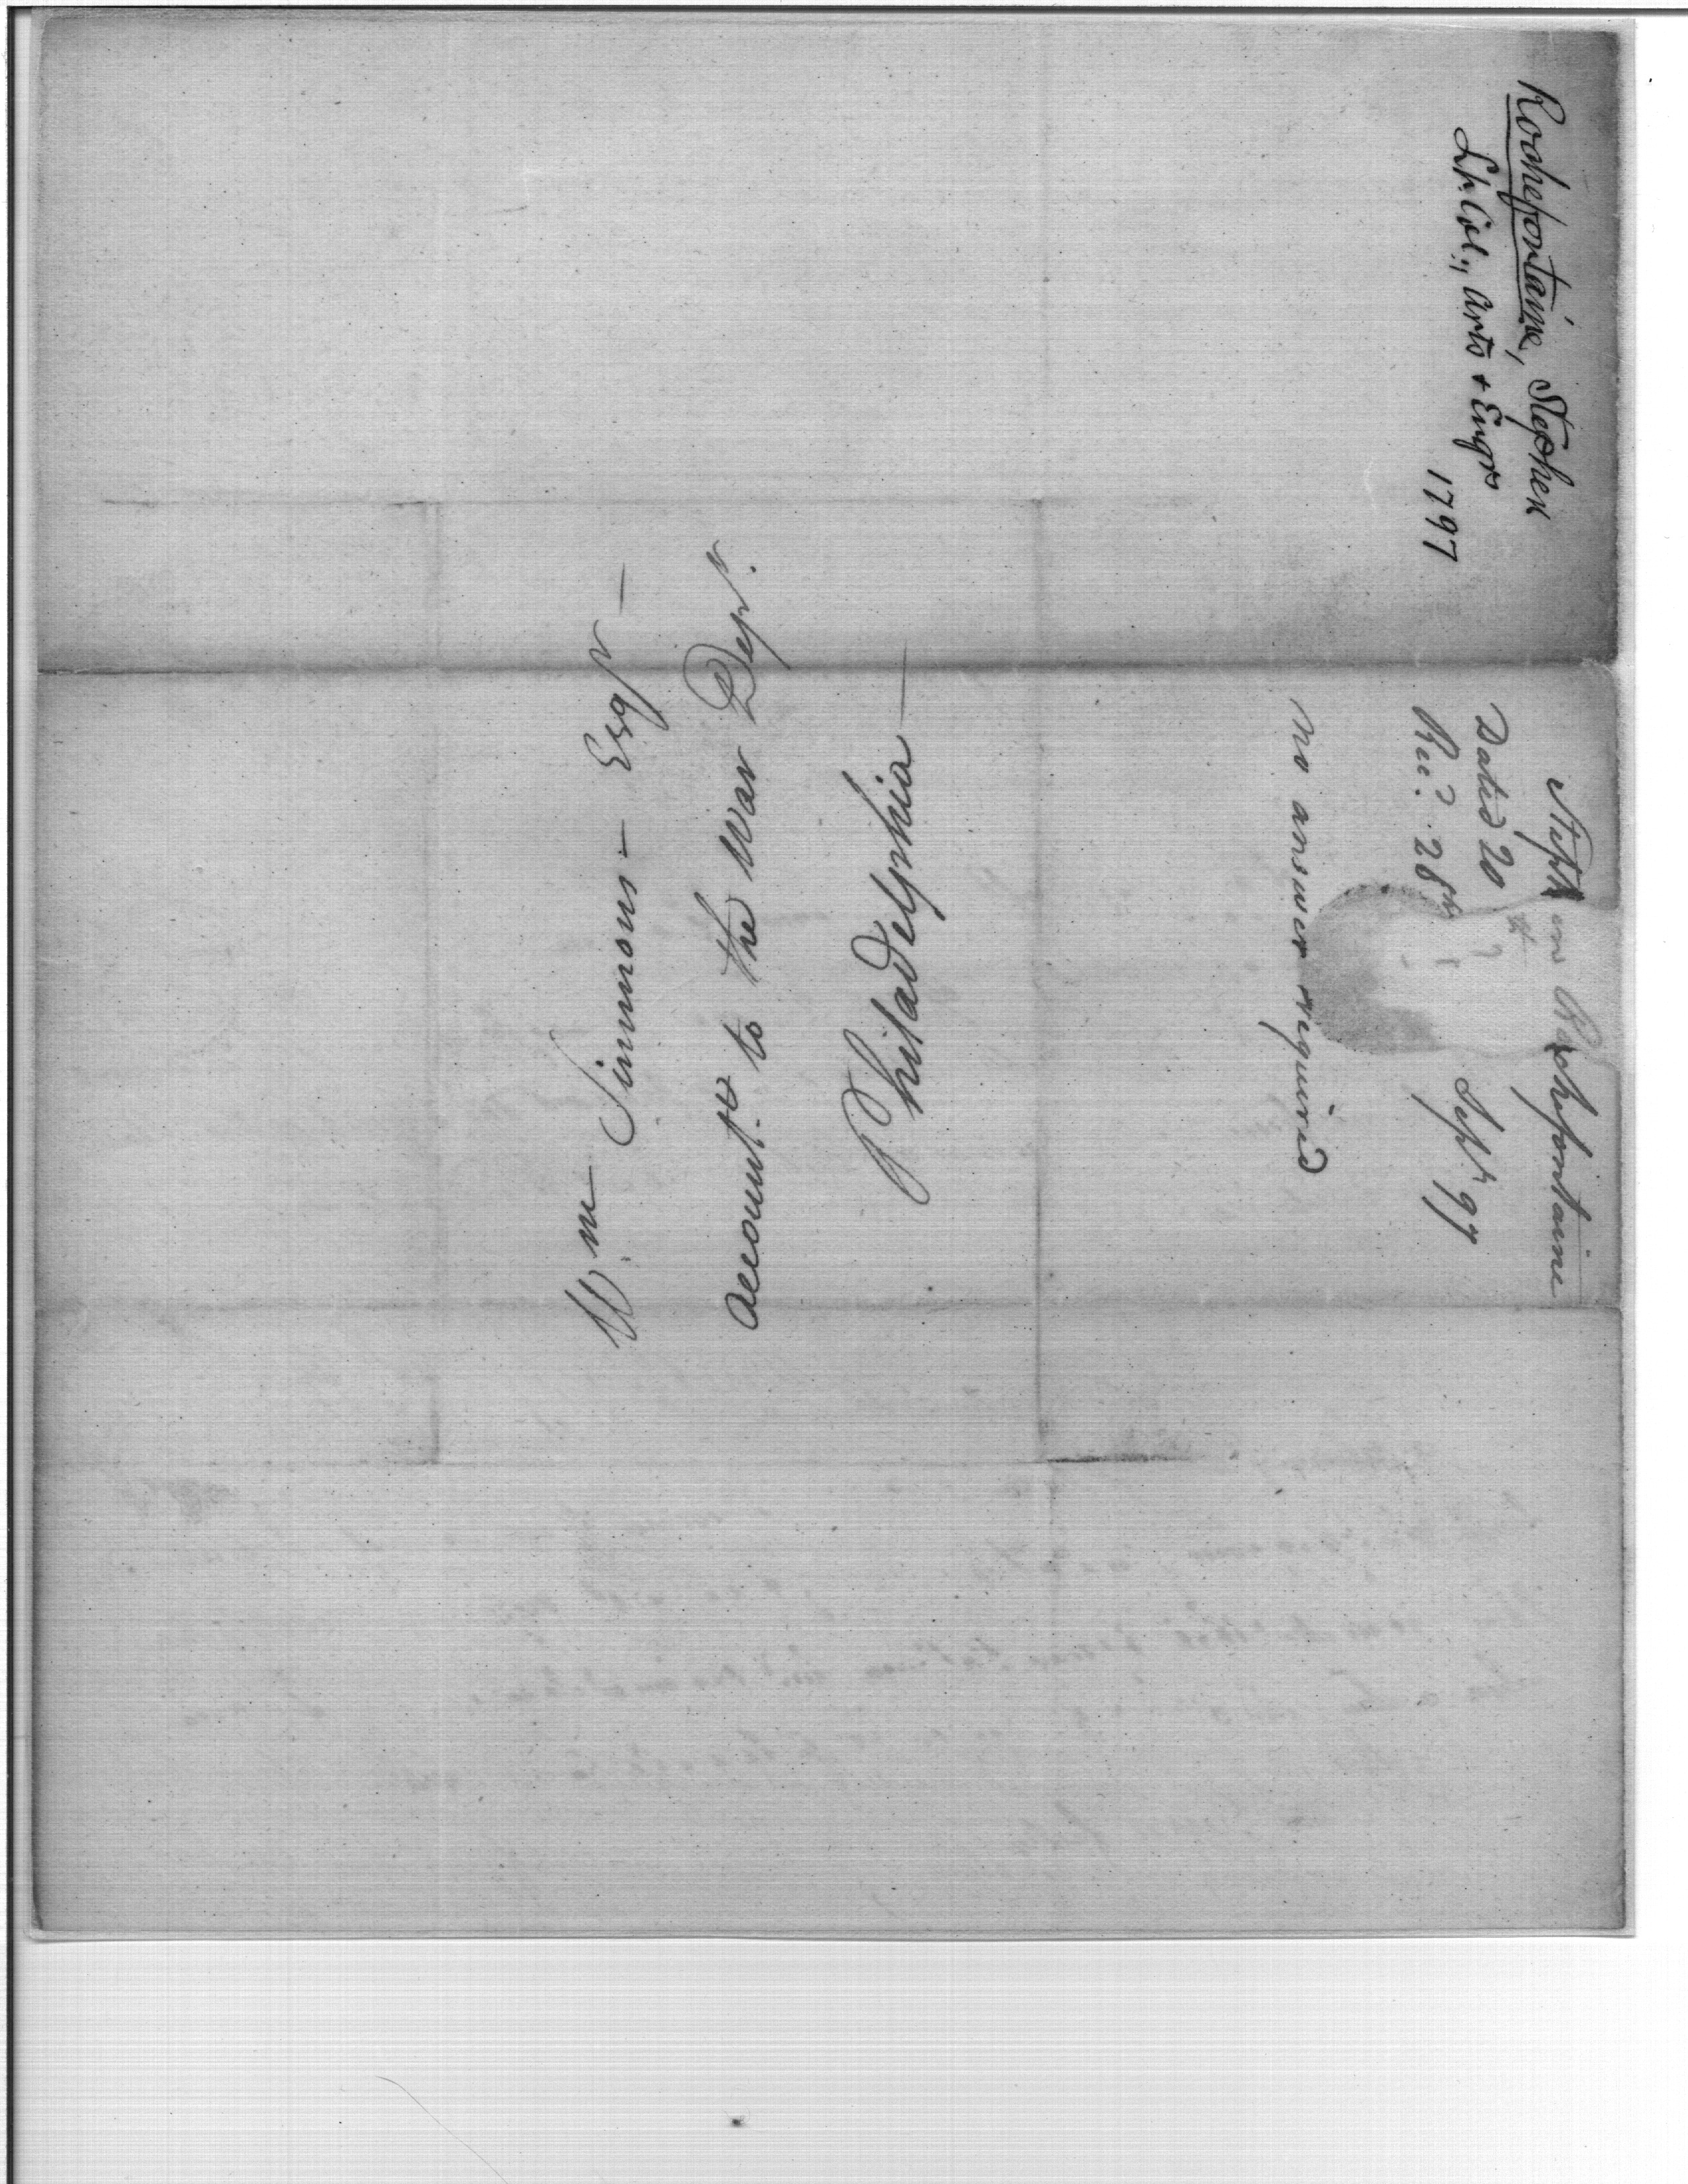 Rochefontaine, Stephen
Lt. Col., Arts + Engrs
1797
Stephen Rochefontaine
Dated 20
Rec.d 28th Sept. 97
no answer required
Wm Simmons - Esqr -
Accountt. to the War Dept.
Philadelphia